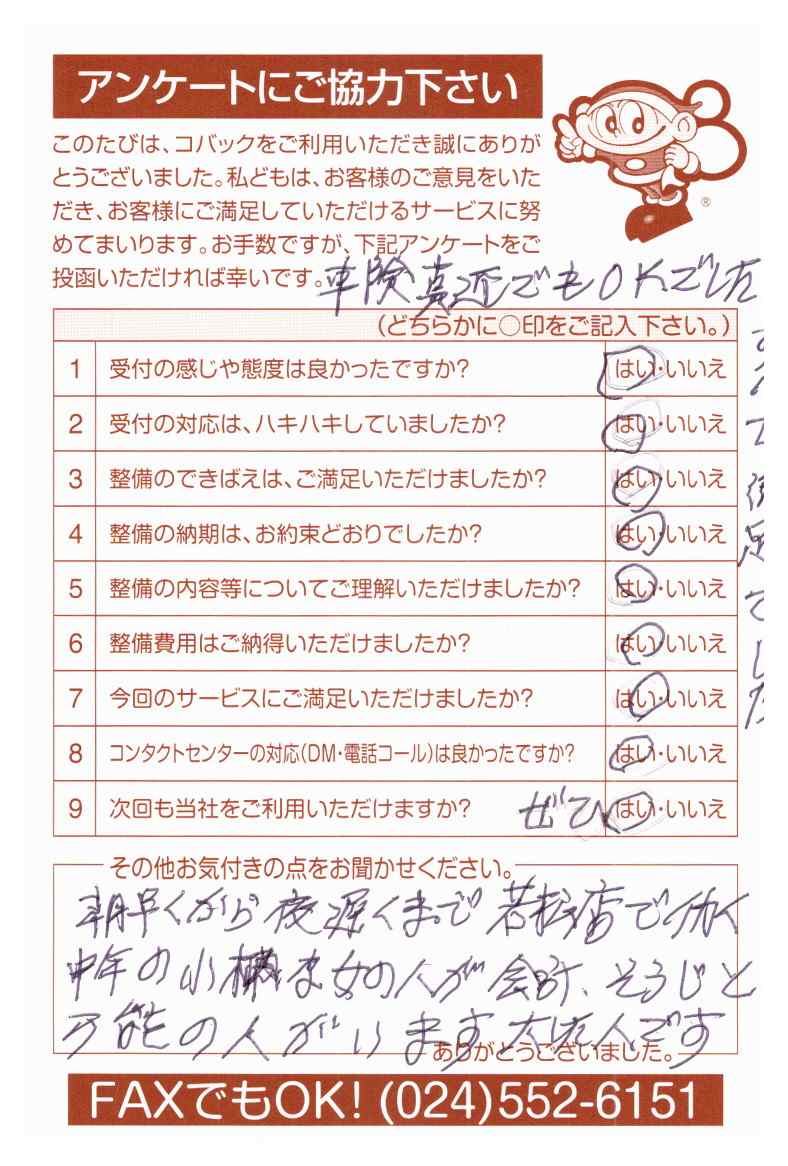 アンケートにご協力下さい
このたびは、コバックをご利用いただき誠にありが
とうございました。私どもは、お客様のご意見をいた
だき、お客様にご満足していただけるサービスに努
めてまいります。お手数ですが、下記アンケートをご
投函いただければ幸いです。
®
車険真近でもOKでした
(どちらかに○印をご記入下さい。)
1 受付の感じや態度は良かったですか? はい・いいえ
2 受付の対応は、ハキハキしていましたか? はい・いいえ
3 整備のできばえは、ご満足いただけましたか? はい・いいえ
4 整備の納期は、お約束どおりでしたか? はい・いいえ
5 整備の内容等についてご理解いただけましたか? はい・いいえ
6 整備費用はご納得いただけましたか? はい・いいえ
7 今回のサービスにご満足いただけましたか? はい・いいえ
8 コンタクトセンターの対応(DM・電話コール)は良かったですか? はい・いいえ
9 次回も当社をご利用いただけますか? ぜひ はい・いいえ
足でした
その他お気付きの点をお聞かせください。
朝早くから夜遅くまで若松店で働く
中年の小柄な女の人が会計、そうじと
万能の人がいます大した人です
ありがとうございました。
FAXでもOK! (024)552-6151